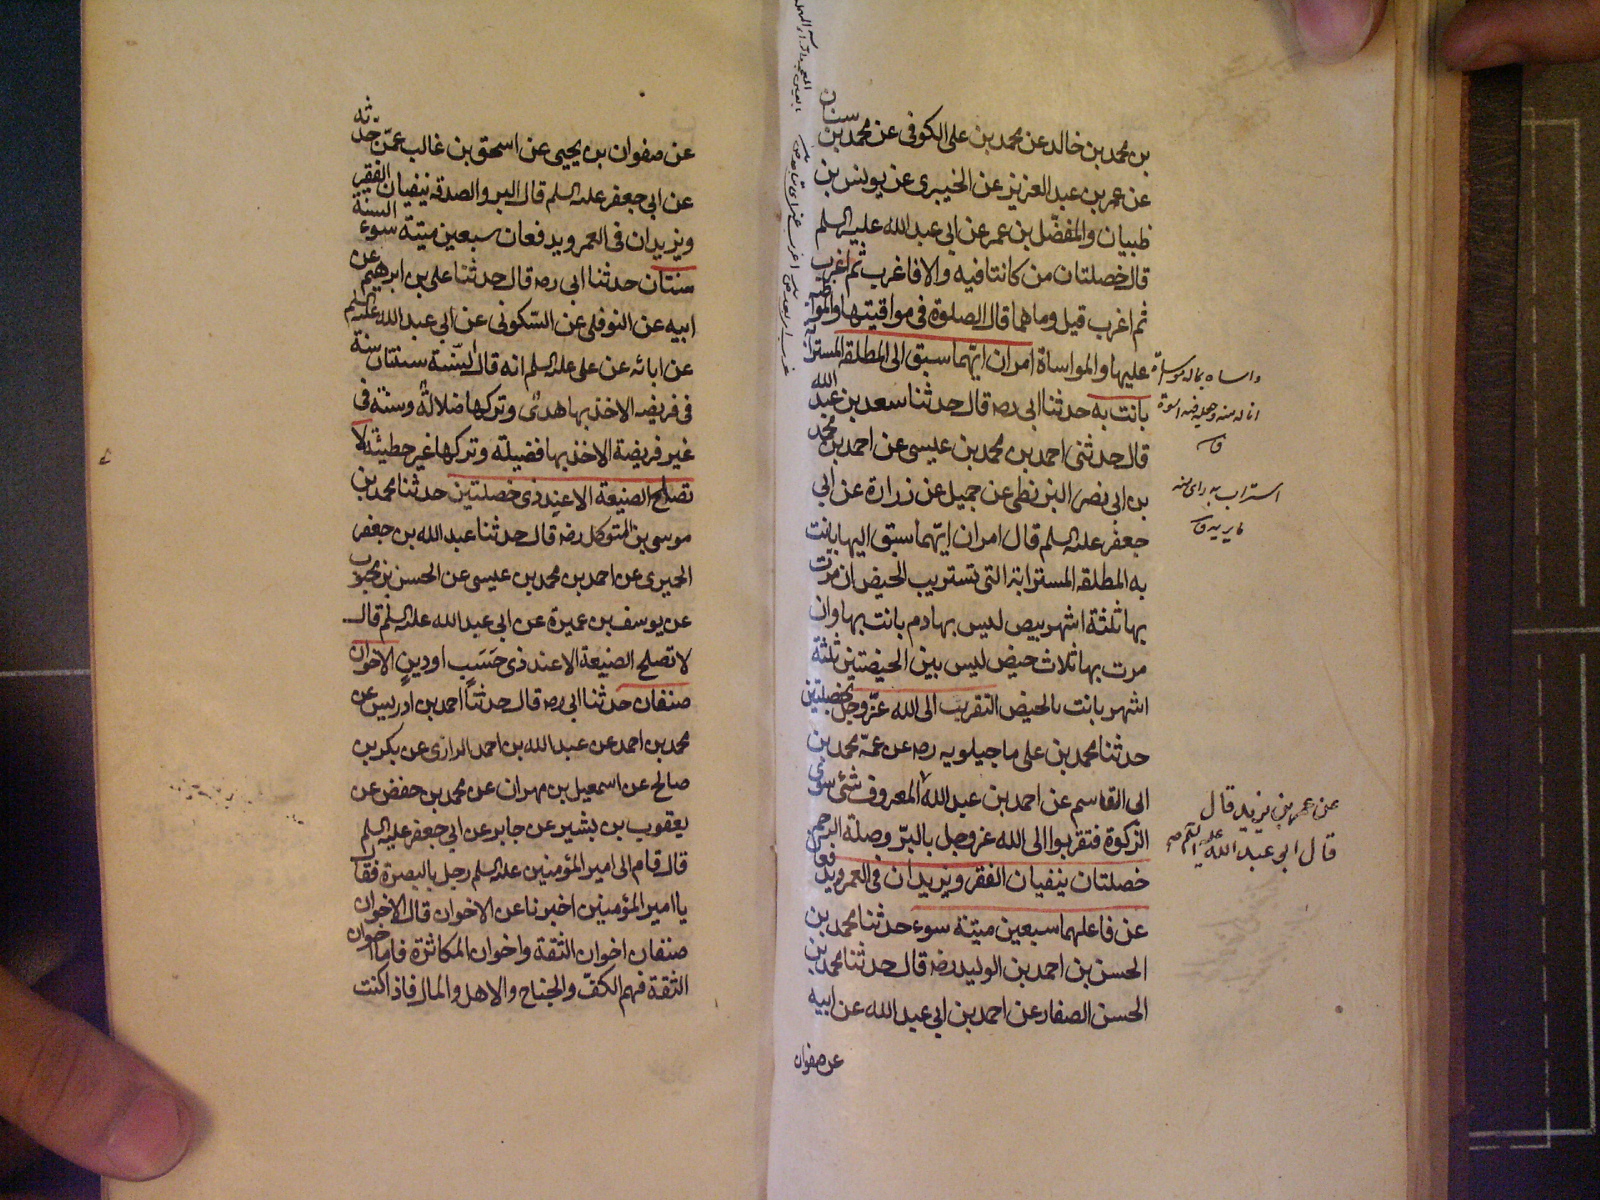 بن محمد بن خالد عن محمد بن على الكوفى عن محمد بن سنان
عن عمر بن عبد العزيز عن الخيبرى عن يونس بن
ظبيان والمفضّل بن عمر عن ابى عبد الله عليه السلم
قال خصلتان من كانتا فيه والا فاغرب ثم اغرب
ثم اغرب قيل وما هما قال الصلوة فى مواقيتها والمواظبة
عليها والمواساة امران ايهما سبق الى المطلقة المسترابة
بانت به حدثنا ابى ره قال حدثنا سعد بن عبد الله
قال حدثنى احمد بن محمد بن عيسى عن احمد بن محمد
بن ابى نصر البزنطى عن جميل عن زرارة عن ابى
جعفر عليه السلم قال امران ايّهما سبق اليها بانت
به المطلقه المسترابة التى تستريب الحيض ان مرّت
بها ثلثة اشهر بيض ليس بها دم بانت بها وان
مرت بها ثلاث حيض ليس بين الحيضتين ثلثة
اشهر بانت بالحيض التقرب الى الله عزّ وجلّ بخصلتين
حدثنا محمد بن على ماجيلويه ره عن عمّه محمد بن
ابى القاسم عن احمد بن عبد الله المعروف شئ سوى
الزكوة فتقربوا الى الله عز وجل بالبرّ وصلة الرحم
خصلتان ينفيان الفقر ويزيدان فى العمر ويدفعان
عن فاعلهما سبعين ميتة سوء حدثنا محمد بن
الحسن بن احمد بن الوليد ره قال حدثنا محمد بن
الحسن الصفار عن احمد بن ابى عبد الله عن ابيه
عن صفوان
عن عمر بن يزيد قال
قال ابو عبد الله عليه السلم
عن صفوان بن يحيى عن اسحق بن غالب عمّن حدّثه
عن ابى جعفر عليه السلم قال البر والصدقة ينفيان الفقر
ويزيدان فى العمر ويدفعان سبعين ميتة سوء السنة
سنتان حدثنا ابى ره قال حدثنا على بن ابرهيم عن
ابيه عن النوفلى عن السّكونى عن ابى عبد الله عليه السلم
عن ابائه عن على عليه السلم انه قال السّنة سنتان سنة
فى فريضة الاخذ بها هدى وتركها ضلالة وسنة فى
غير فريضة الاخذ بها فضيلة وتركها غير خطيئة لا
تصلح الصنيعة الا عند ذى خصلتين حدثنا محمد بن
موسى بن المتوكل ره قال حدثنا عبد الله بن جعفر
الحميرى عن احمد بن محمد بن عيسى عن الحسن بن محبوب
عن يوسف بن عميرة عن ابى عبد الله عليه السلم قال
لا تصلح الصنيعة الا عند ذى حَسَبٍ او دين الاخوان
صنفان حدثنا ابى ره قال حدثنا احمد بن ادريس عن
محمد بن احمد عن عبد الله بن احمد الرازى عن بكر بن
صالح عن اسمعيل بن مهران عن محمد بن حفص عن
يعقوب بن بشير عن جابر عن ابى جعفر عليه السلم
قال قام الى امير المؤمنين عليه السلم رجل بالبصرة فقال
يا امير المؤمنين اخبرنا عن الاخوان قال الاخوان
صنفان اخوان الثقة واخوان المكاشرة فاما اخوان
الثقة فهم الكفّ والجناح والاهل والمال فاذا كنت